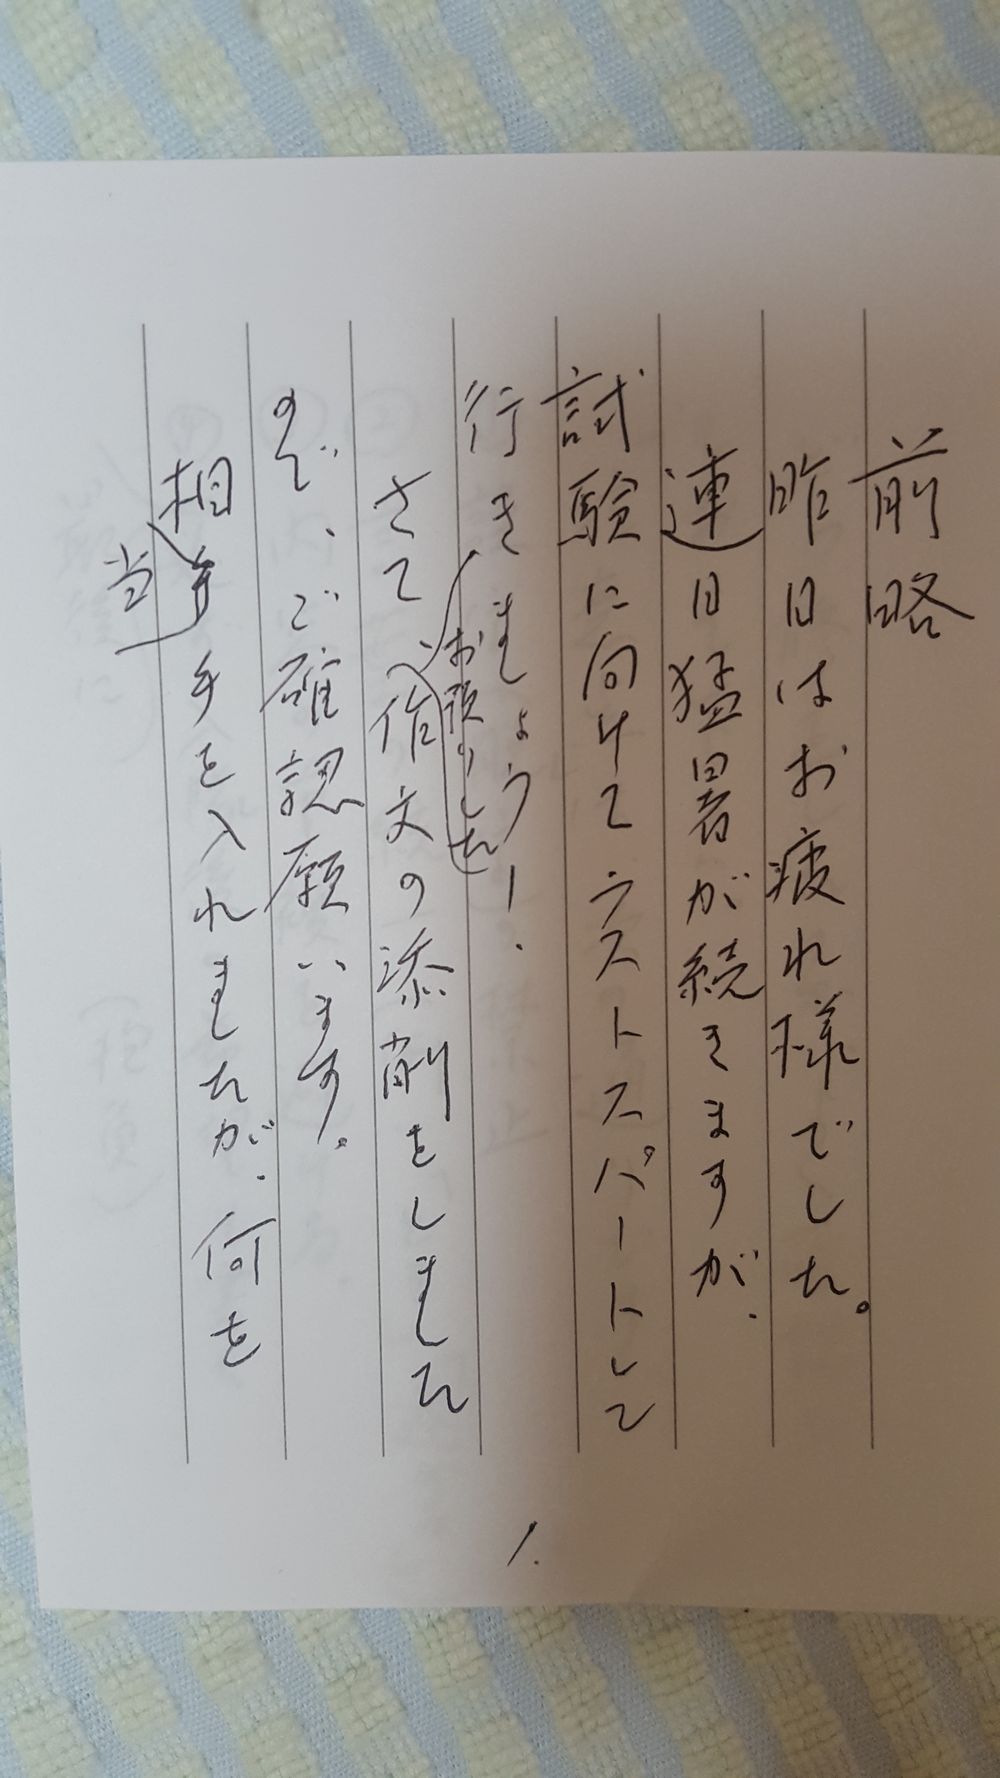 前略
昨日はお疲れ様でした。
連日猛暑が続きますが、
試験に向けてラストスパートして
行きましょう！
お預りした
さて作文の添削をしました
ので、ご確認願います。
相手手を入れましたが、何を
当
1.